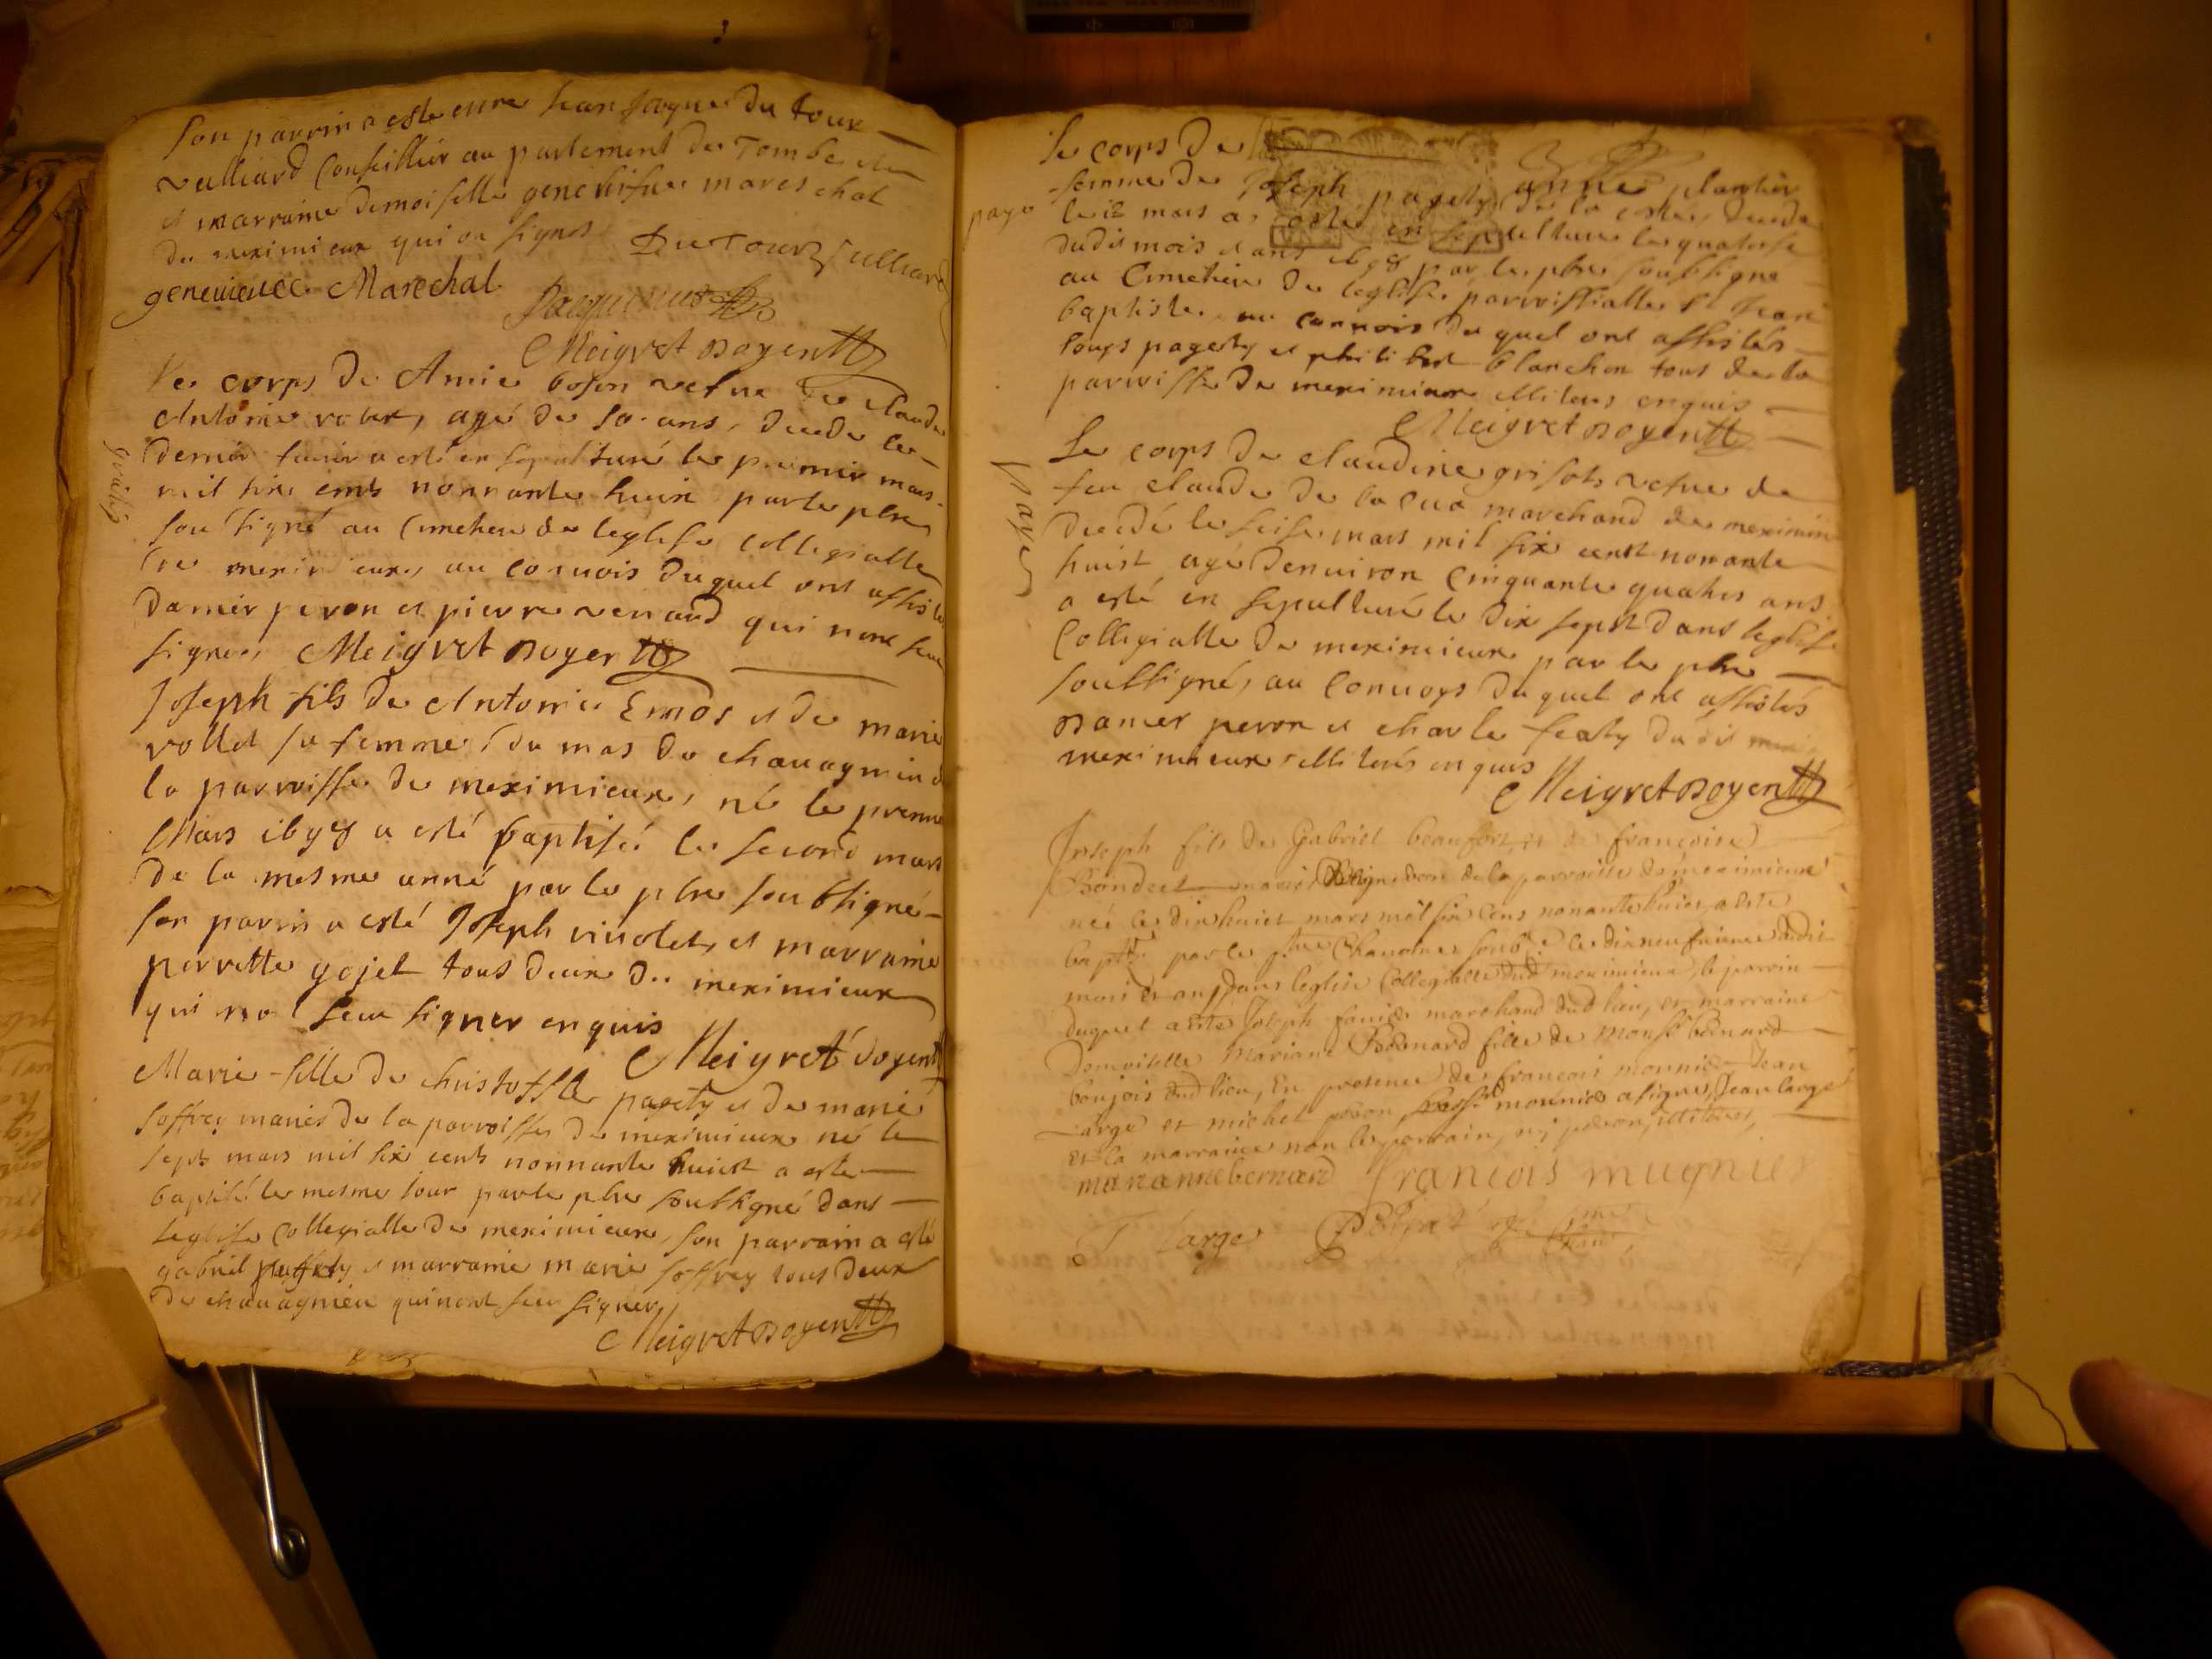 Son parrin a esté jean jaque du tour
vulliard Conseillier au parlement de Dombe
et marraine demoiselle genevifve mareschal
de meximieux qui on signes
DuTour Vulliard
genevieuee Marechal
Meigret doyen
Le corps de Amie boson vefue de claude
Antoine agé de 50 ans, decede le
dernier a esté en sepulturé le premir mars
mil six cents nonnante huict par le pbre
soussigné au Cimetiere de leglise collegialle
de meximieux, au convois duquel ont assistes
damier peron et pierre renaud qui nont seu
signer, Meigret doyen
gratis
Joseph fils de Antoine et de marie
vollet sa femme, du mas de chavagnieu de
la parroisse de meximieux, né le premier
Mars 1698 a esté baptisé le second mars
de la mesme anné par le pbre soubsigné
son parrin a esté Joseph vivolet, et marraine
perrette gojet tous deux de meximieux
qui non seu signer enquis
Meigret doyen
Marie fille de christoffle et de marie
soffrey mariés de la parroisse de meximieux né le
sept mars mil six cents nonnante huict a esté
baptisé le mesme jour par le pbre soubsigné dans
leglise collegialle de meximieux, son parrain a esté
gabriel et marraine marie soffrey tous deux
de chavagnieu qui nont seu signer,
Meigret doyen
Le corps de anne plantier
femme de Joseph de la coste, decede
le 12 mars a esté en sepulture le quatorse
dudis mois et ans 1698 par le pbre soubsigne
au Cimetiere de leglise parroissialle St Jean
baptiste, au convois du quel ont assistés
louys pagety et philibert blanchon tous de la
parroisse de meximieux illiteres enquis
Meigret doyen
paye
Le corps de claudine grisot vefue de
feu claude de la cua marchand de meximieux
decedé le seise mars mil six cent nonante
huist agé denuiron Cinquante quatres ans
a esté en sepulturé le dix sept dans leglise
Collegialle de meximieux par le pbre
soussigné, au Convoys du quel ont assistés
damier peron et charle du dit
meximieux illiterés enquis
Meigret doyen
paye
Joseph fils de Gabriel beaufort, et de françoise
mariés de la parroisse de meximieux
né le dix huict mars mil six cens nonante huict, a esté
bapt par le pbre Chanoine soub le dix neufvieme dudit
mois et an, dans leglise Collegialle dud meximieux, le parrin
duquel a esté Joseph marchand dud lieu, et marraine
Demoiselle Mariane Bernard fille de Mons bernard
bourjois dud lieu, En presence de françois monnier Jean
Large et michel peron, monnier a signe, Jean large
et la marraine non le parrain, ny peron, illiteres,
marianne bernard francois mugnier
J Large